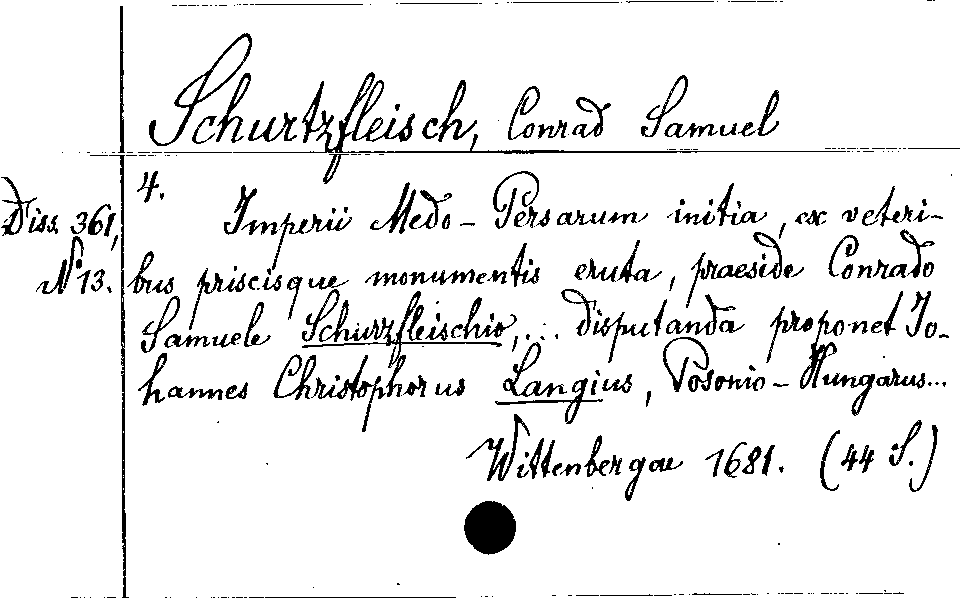 Schurtzfleisch, Conrad Samuel
4.
Diss. 361,
N° 13.
Imperii Medo-Persarum initia, ex veteri-
bus priscisque monumentis eruta, praeside Conrado
Samuele Schurzfleischio, ... disputanda proponet Jo-
hannes Christophorus Langius, Posonio-Hungarus...
Wittenbergae 1681. (44 S.)